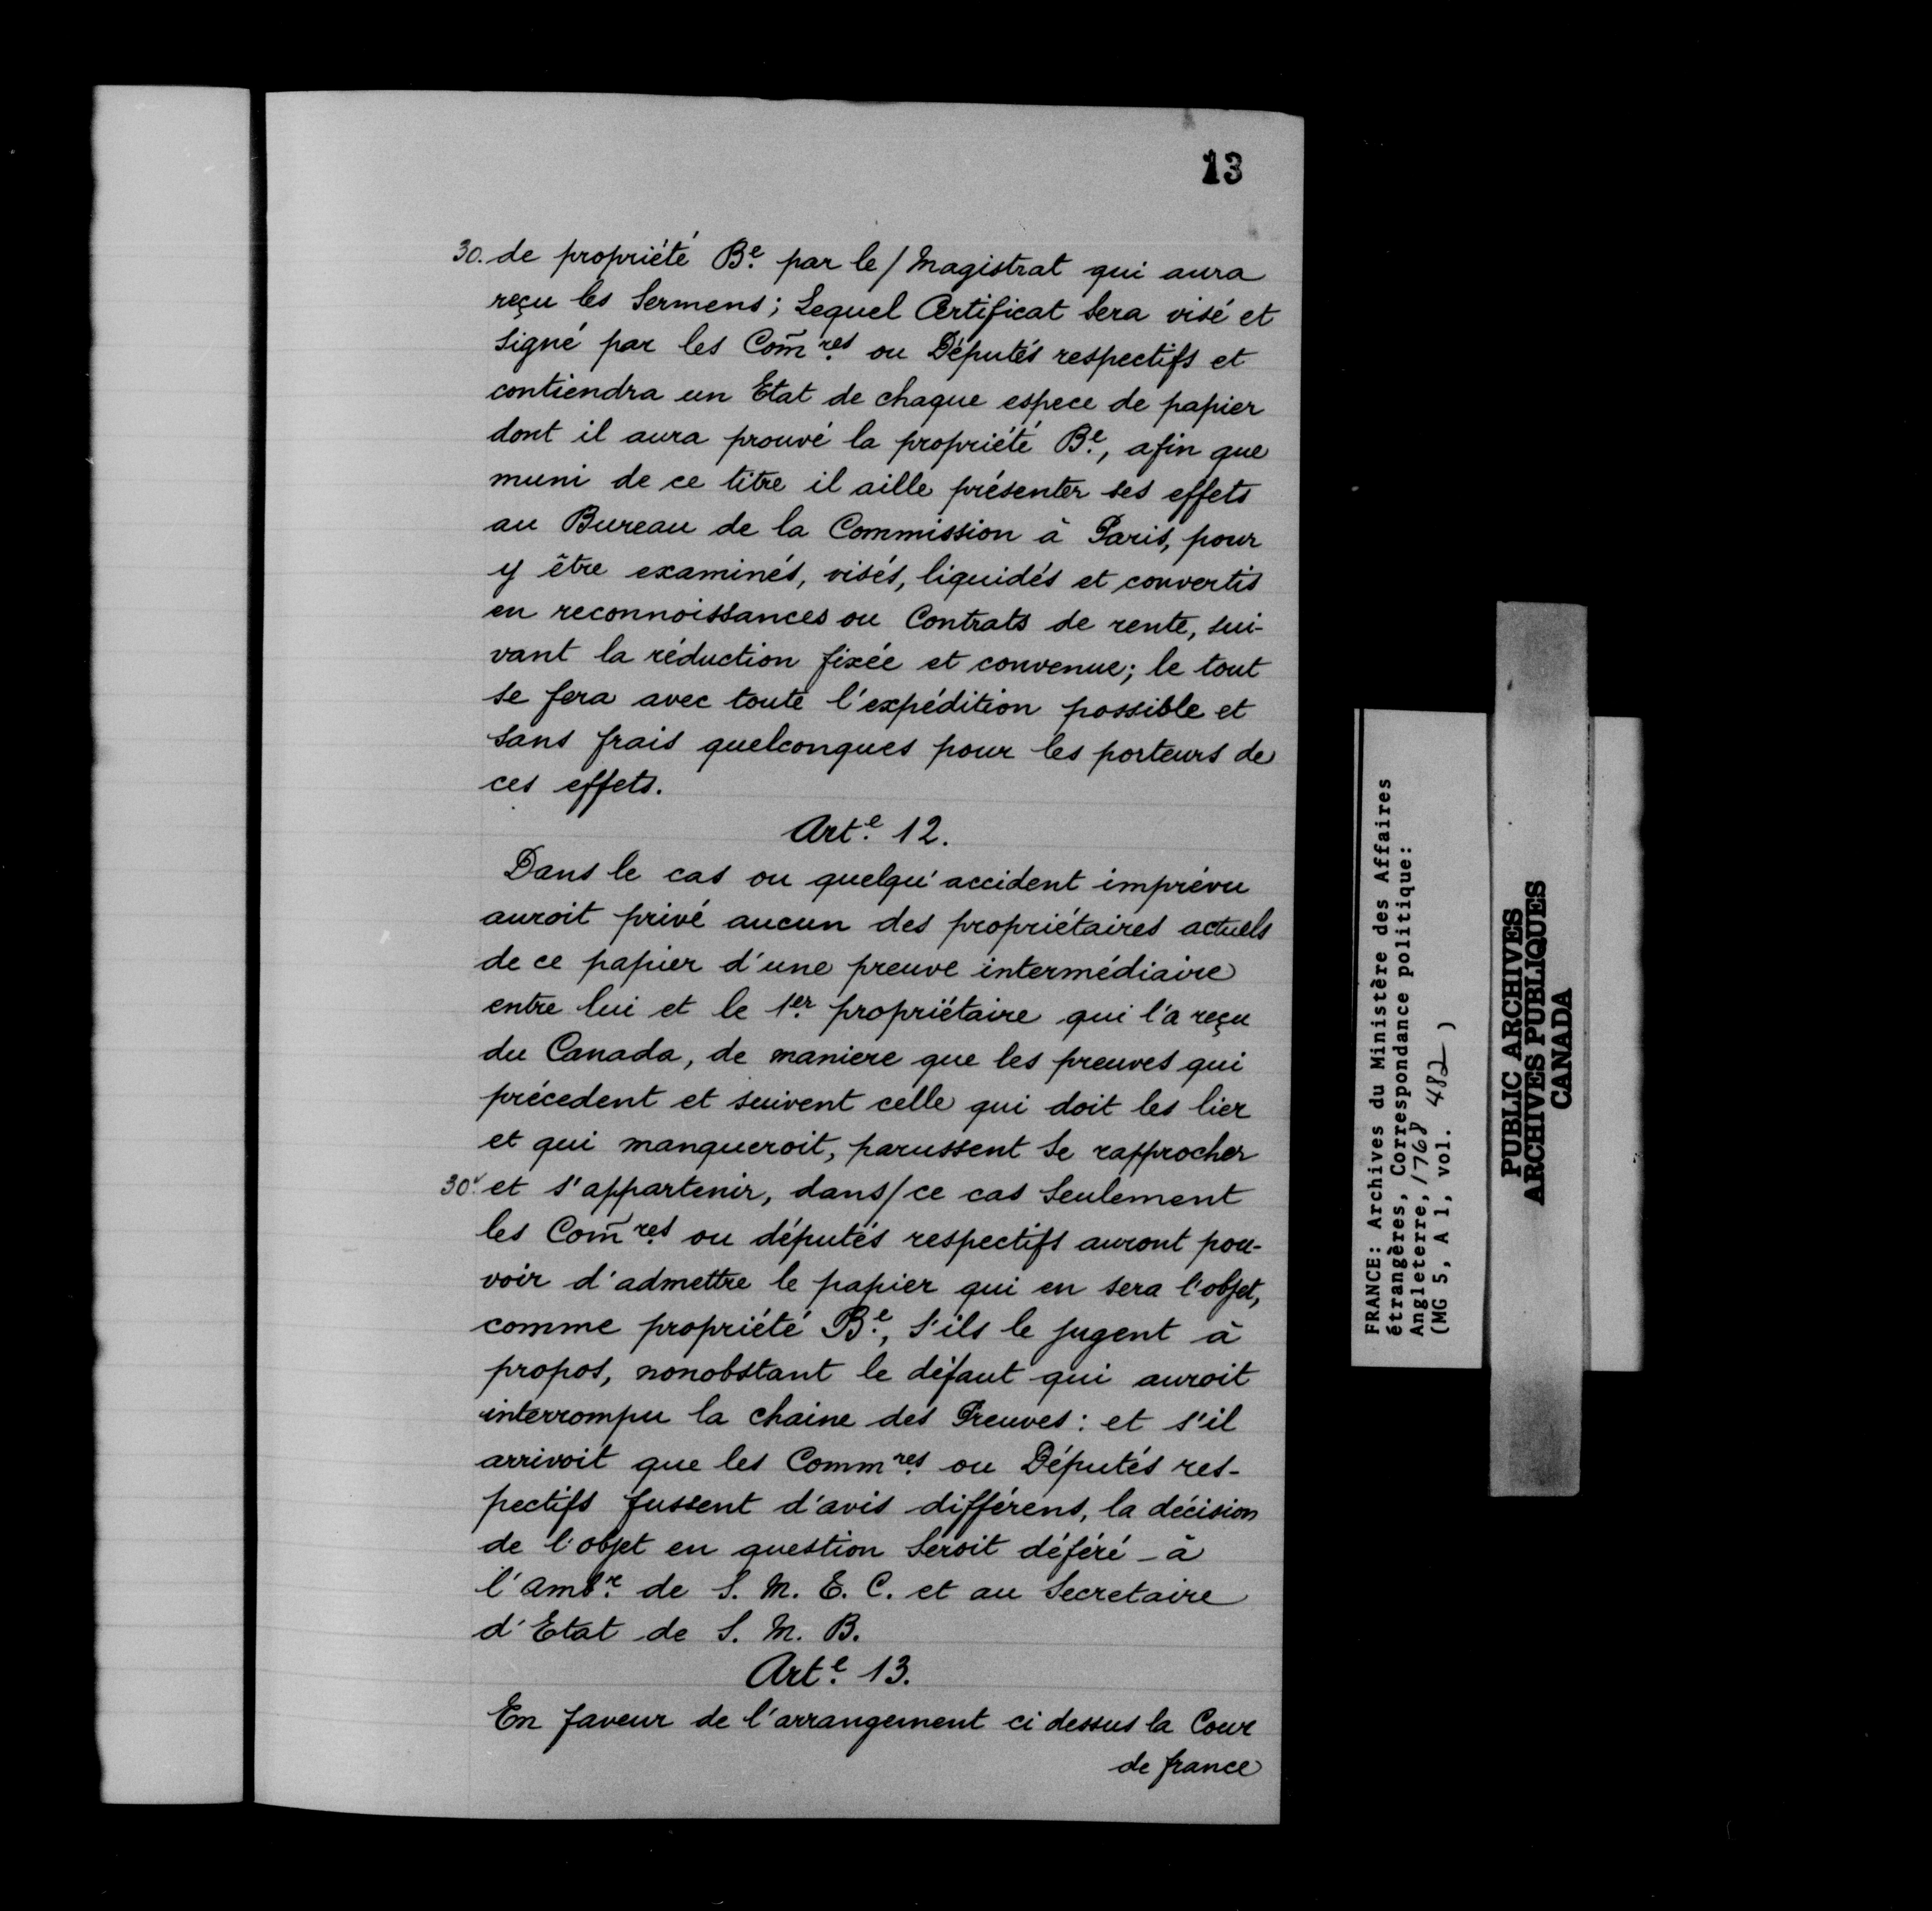 13
30. de propriété Be. par le / Magistrat qui aura
reçu les Sermens; Lequel Certificat Sera visé et
Signé par les Com̃res. ou Députés respectifs et
contiendra un Etat de chaque espece de papier
dont il aura prouvé la propriété Be., afin que
muni de ce titre il aille présenter ses effets
au Bureau de la Commission à Paris, pour
y être examinés, visés, liquidés et convertis
en reconnoissances ou Contrats de rente, sui-
vant la réduction fixée et convenue; le tout
se fera avec toute l'expédition possible et
Sans frais quelconques pour les porteurs de
ces effets.
Arte. 12.
Dans le cas ou quelqu'accident imprévu
auroit privé aucun des propriétaires actuels
de ce papier d'une preuve intermédiaire
entre lui et le 1er. propriétaire qui l'a reçu
du Canada, de maniere que les preuves qui
précedent et suivent celle qui doit les lier
et qui manqueroit, parussent Se rapprocher
30v. et s'appartenir, dans / ce cas Seulement
les Com̃res. ou députés respectifs auront pou-
voir d'admettre le papier qui en sera l'objet,
comme propriété Be., S'ils le jugent à
propos, nonobstant le défaut qui auroit
interrompu la chaine des Preuves: et s'il
arrivoit que les Commres. ou Députés res-
pectifs fussent d'avis différens, la décision
de l'objet en question Seroit déféré - à
l'Ambr. de S. M. E. C. et au Secretaire
d'Etat de S. M. B.
Arte. 13.
En faveur de l'arrangement ci dessus la Cour
de france
FRANCE: Archives du Ministère des Affaires
étrangères, Correspondance politique:
Angleterre, 1768
(MG 5, A 1, vol. 482 )
PUBLIC ARCHIVES
ARCHIVES PUBLIQUES
CANADA